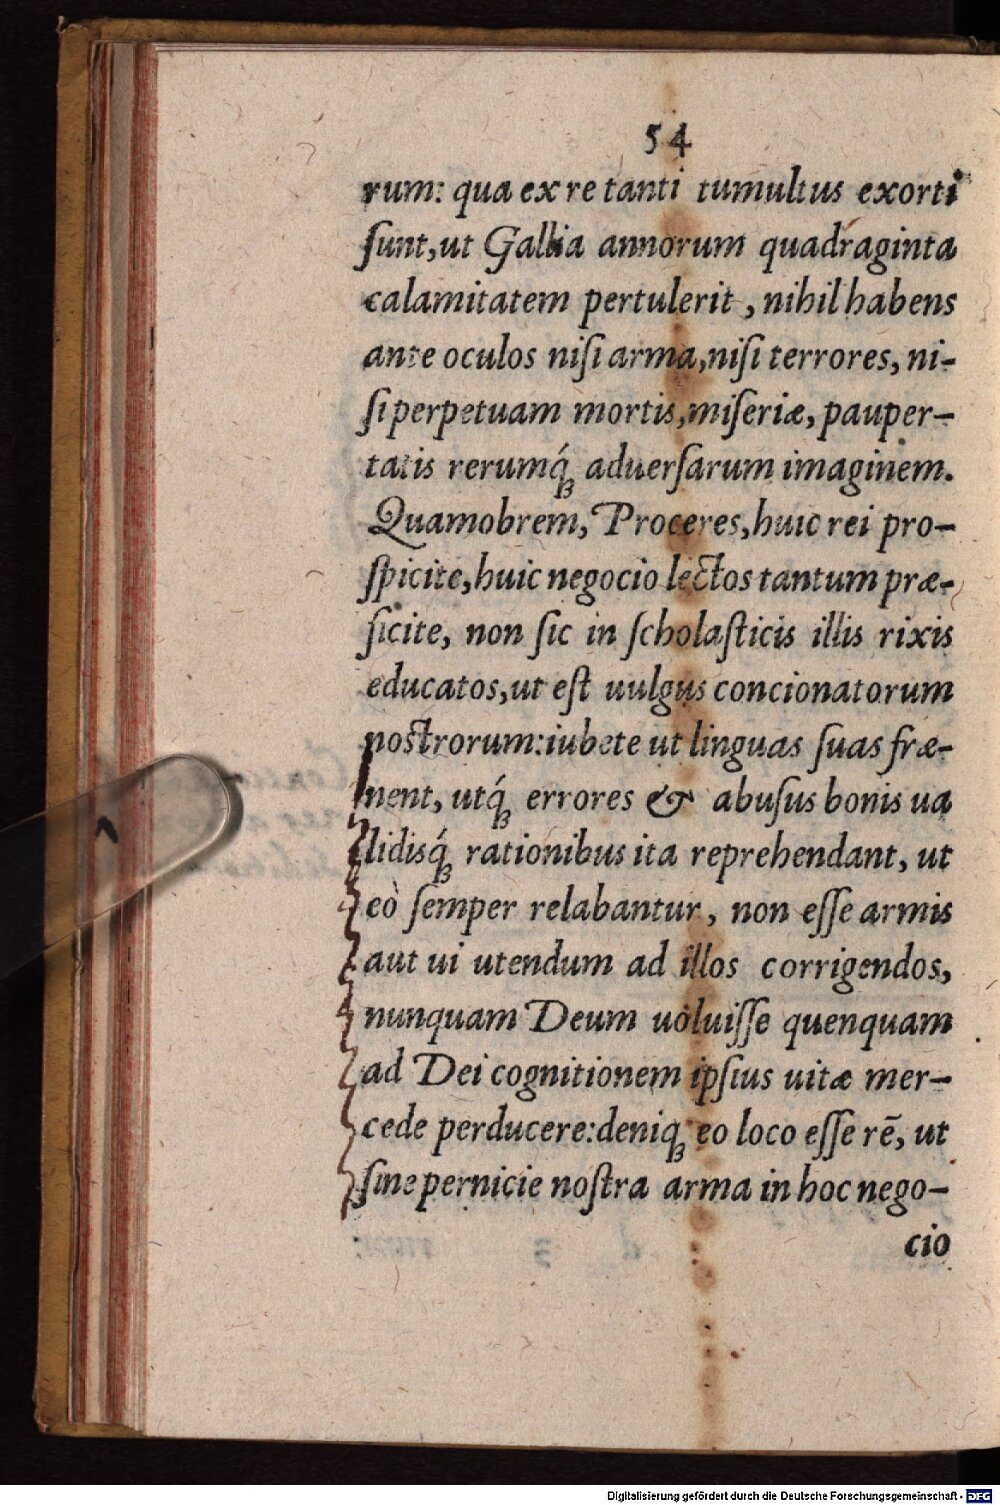 54
rum: qua ex re tanti tumultus exorti
ſunt, ut Gallia annorum quadraginta
calamitatem pertulerit, nihil habens
ante oculos niſi arma, niſi terrores, ni-
ſi perpetuam mortis, miſeriæ, pauper-
tatis rerumq́ꝫ aduerſarum imaginem.
Quamobrem, Proceres, huic rei pro-
ſpicite, huic negocio lectos tantum præ-
ficite, non ſic in ſcholaſticis illis rixis
educatos, ut eſt uulgus concionatorum
noſtrorum: iubete ut linguas ſuas fræ-
nent, utq́ꝫ errores & abuſus bonis ua
lidisq́ꝫ rationibus ita reprehendant, ut
eò ſemper relabantur, non eſſe armis
aut ui utendum ad illos corrigendos,
nunquam Deum uoluiſſe quenquam
ad Dei cognitionem ipſius uitæ mer-
cede perducere: deniqꝫ eo loco eſſe rē, ut
ſine pernicie noſtra arma in hoc nego-
cio
Digitalisierung gefördert durch die Deutsche Forschungsgemeinschaft - DFG